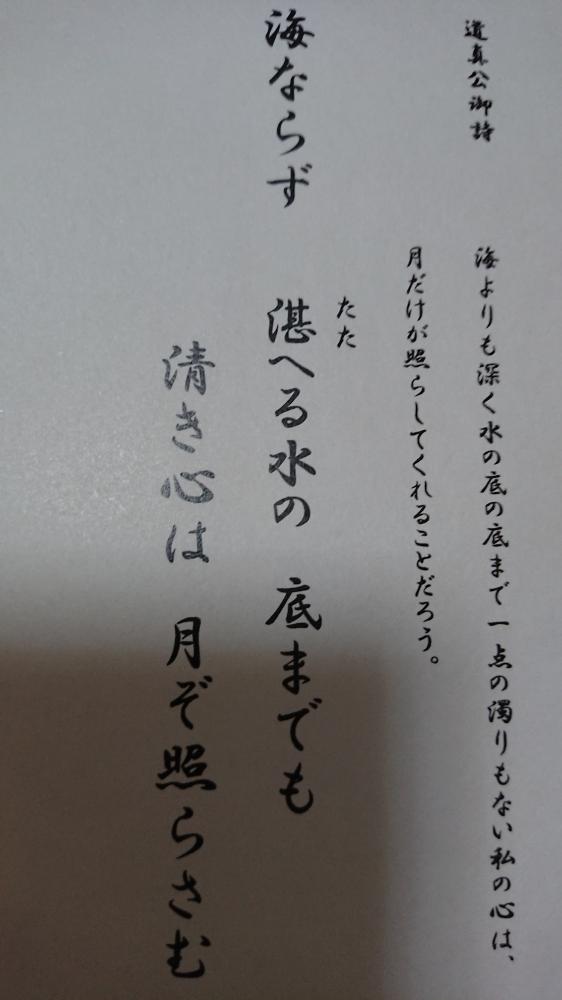 道真公御詩
海よりも深く水の底の底まで一点の濁りもない私の心は、
月だけが照らしてくれることだろう。
たた
海ならず 湛へる水の 底までも
清き心は 月ぞ照らさむ